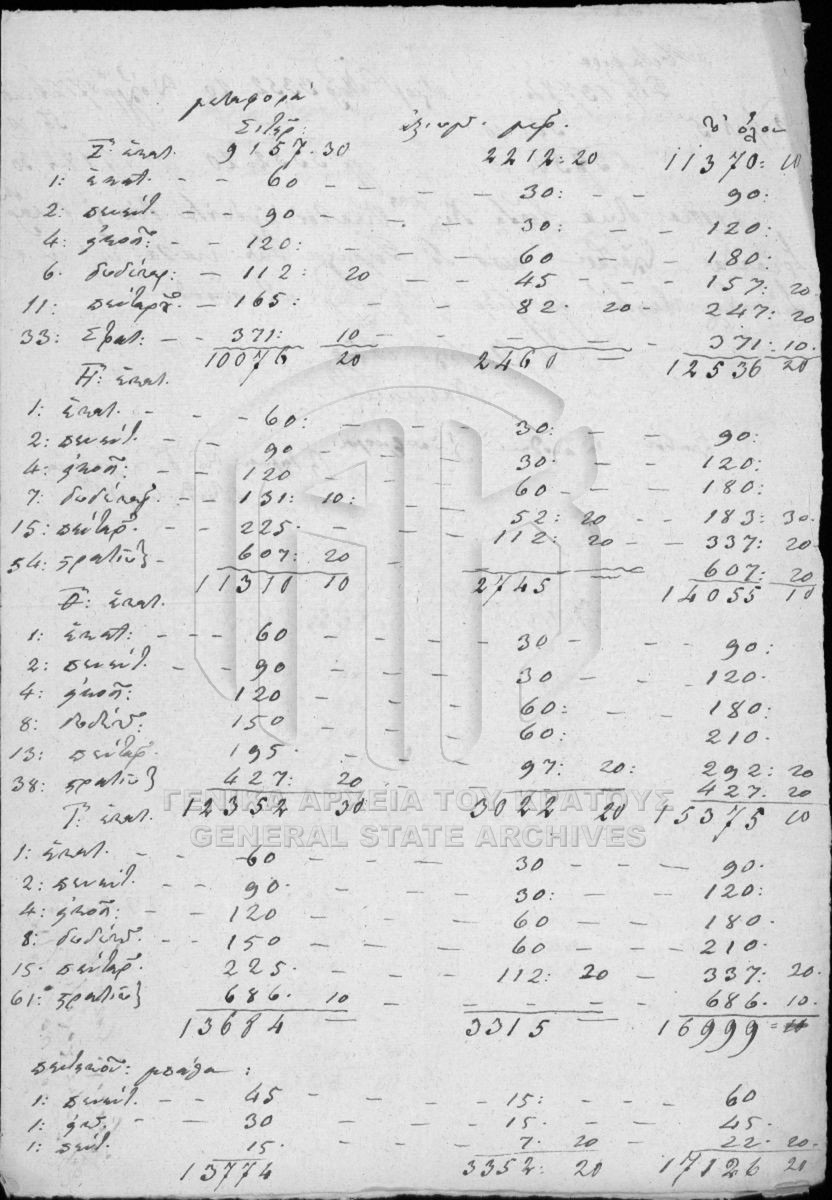 μεταφορά
Σιτηρ: ἀξιωμ. μερ. τὸ ὅλον
Ζ: ἑκατ. 9157. 30 2212: 20 11370: 10
1: ἑκατ. - - 60 - - - - 30: - - 90:
2: πεντ. - 90 - - - 30: - - 120:
4: εἰκοσ: - - 120: - - 60 - - 180:
6. δωδεκαρ: - 112: 20 - - 45 - - - 157: 20.
11: πένταρχ. - 165: - - - 82. 20 247: 20
33: Στρατ. - - 371: 10 - - - - - 371: 10.
10076 20 2460 - 12536 20
Η: ἑκατ.
1: ἑκατ. - - - 60: - - - 30: - - 90:
2: πεντ. - - 90 - - - 30: - - 120:
4: εἰκοσ: - - 120 - - - 60 - - - 180:
7: δωδεκαρ. - - 131: 10: - - 52: 20 - - 183: 30.
15: πένταρ. - - 225. - - - 112: 20 - - 337: 20
54: στρατιῶτ - 607: 20 - 607: 20
11310 10 2745 - 14055 10
Θ: ἑκατ.
1: ἑκατ: - - 60 - - - - 30 - - - 90:
2: πεντ. - - 90 - - - - 30 - - 120.
4: εἰκοσ: 120 - - - - 60: - - 180:
8: δωδεκ. 150 - - - 60: 210.
13: πένταρ. 195. - - - 97: 20: 292: 20
38: στρατιῶτ 427: 20 427. 20
12352 30 3022 20 15375 10
Ι: ἑκατ.
1: ἑκατ. - - - 60 - - - 30 - - - 90.
2: πεντ. - - 90. - - - 30: - - - 120:
4: εἰκοσ: - - 120 - - - 60 - - - 180.
8: δωδεκ. - - 150 - - - 60 - - - 210.
15. πένταρ. 225. - - - 112: 20 - 337: 20.
61: στρατιῶτ 686. 10 - - - - - - 686. 10.
13684 = 3315 = 16999 =
1: πεντ. - - 45 - - - - 15: - - - 60
1: εἰκ. - - 30 - - - - 15 - - - 45.
1: πεντ. 15. - - - - 7. 20 - 22. 20.
13774 3352: 20 17126 20
ΓΕΝΙΚΑ ΑΡΧΕΙΑ ΤΟΥ ΚΡΑΤΟΥΣ
GENERAL STATE ARCHIVES